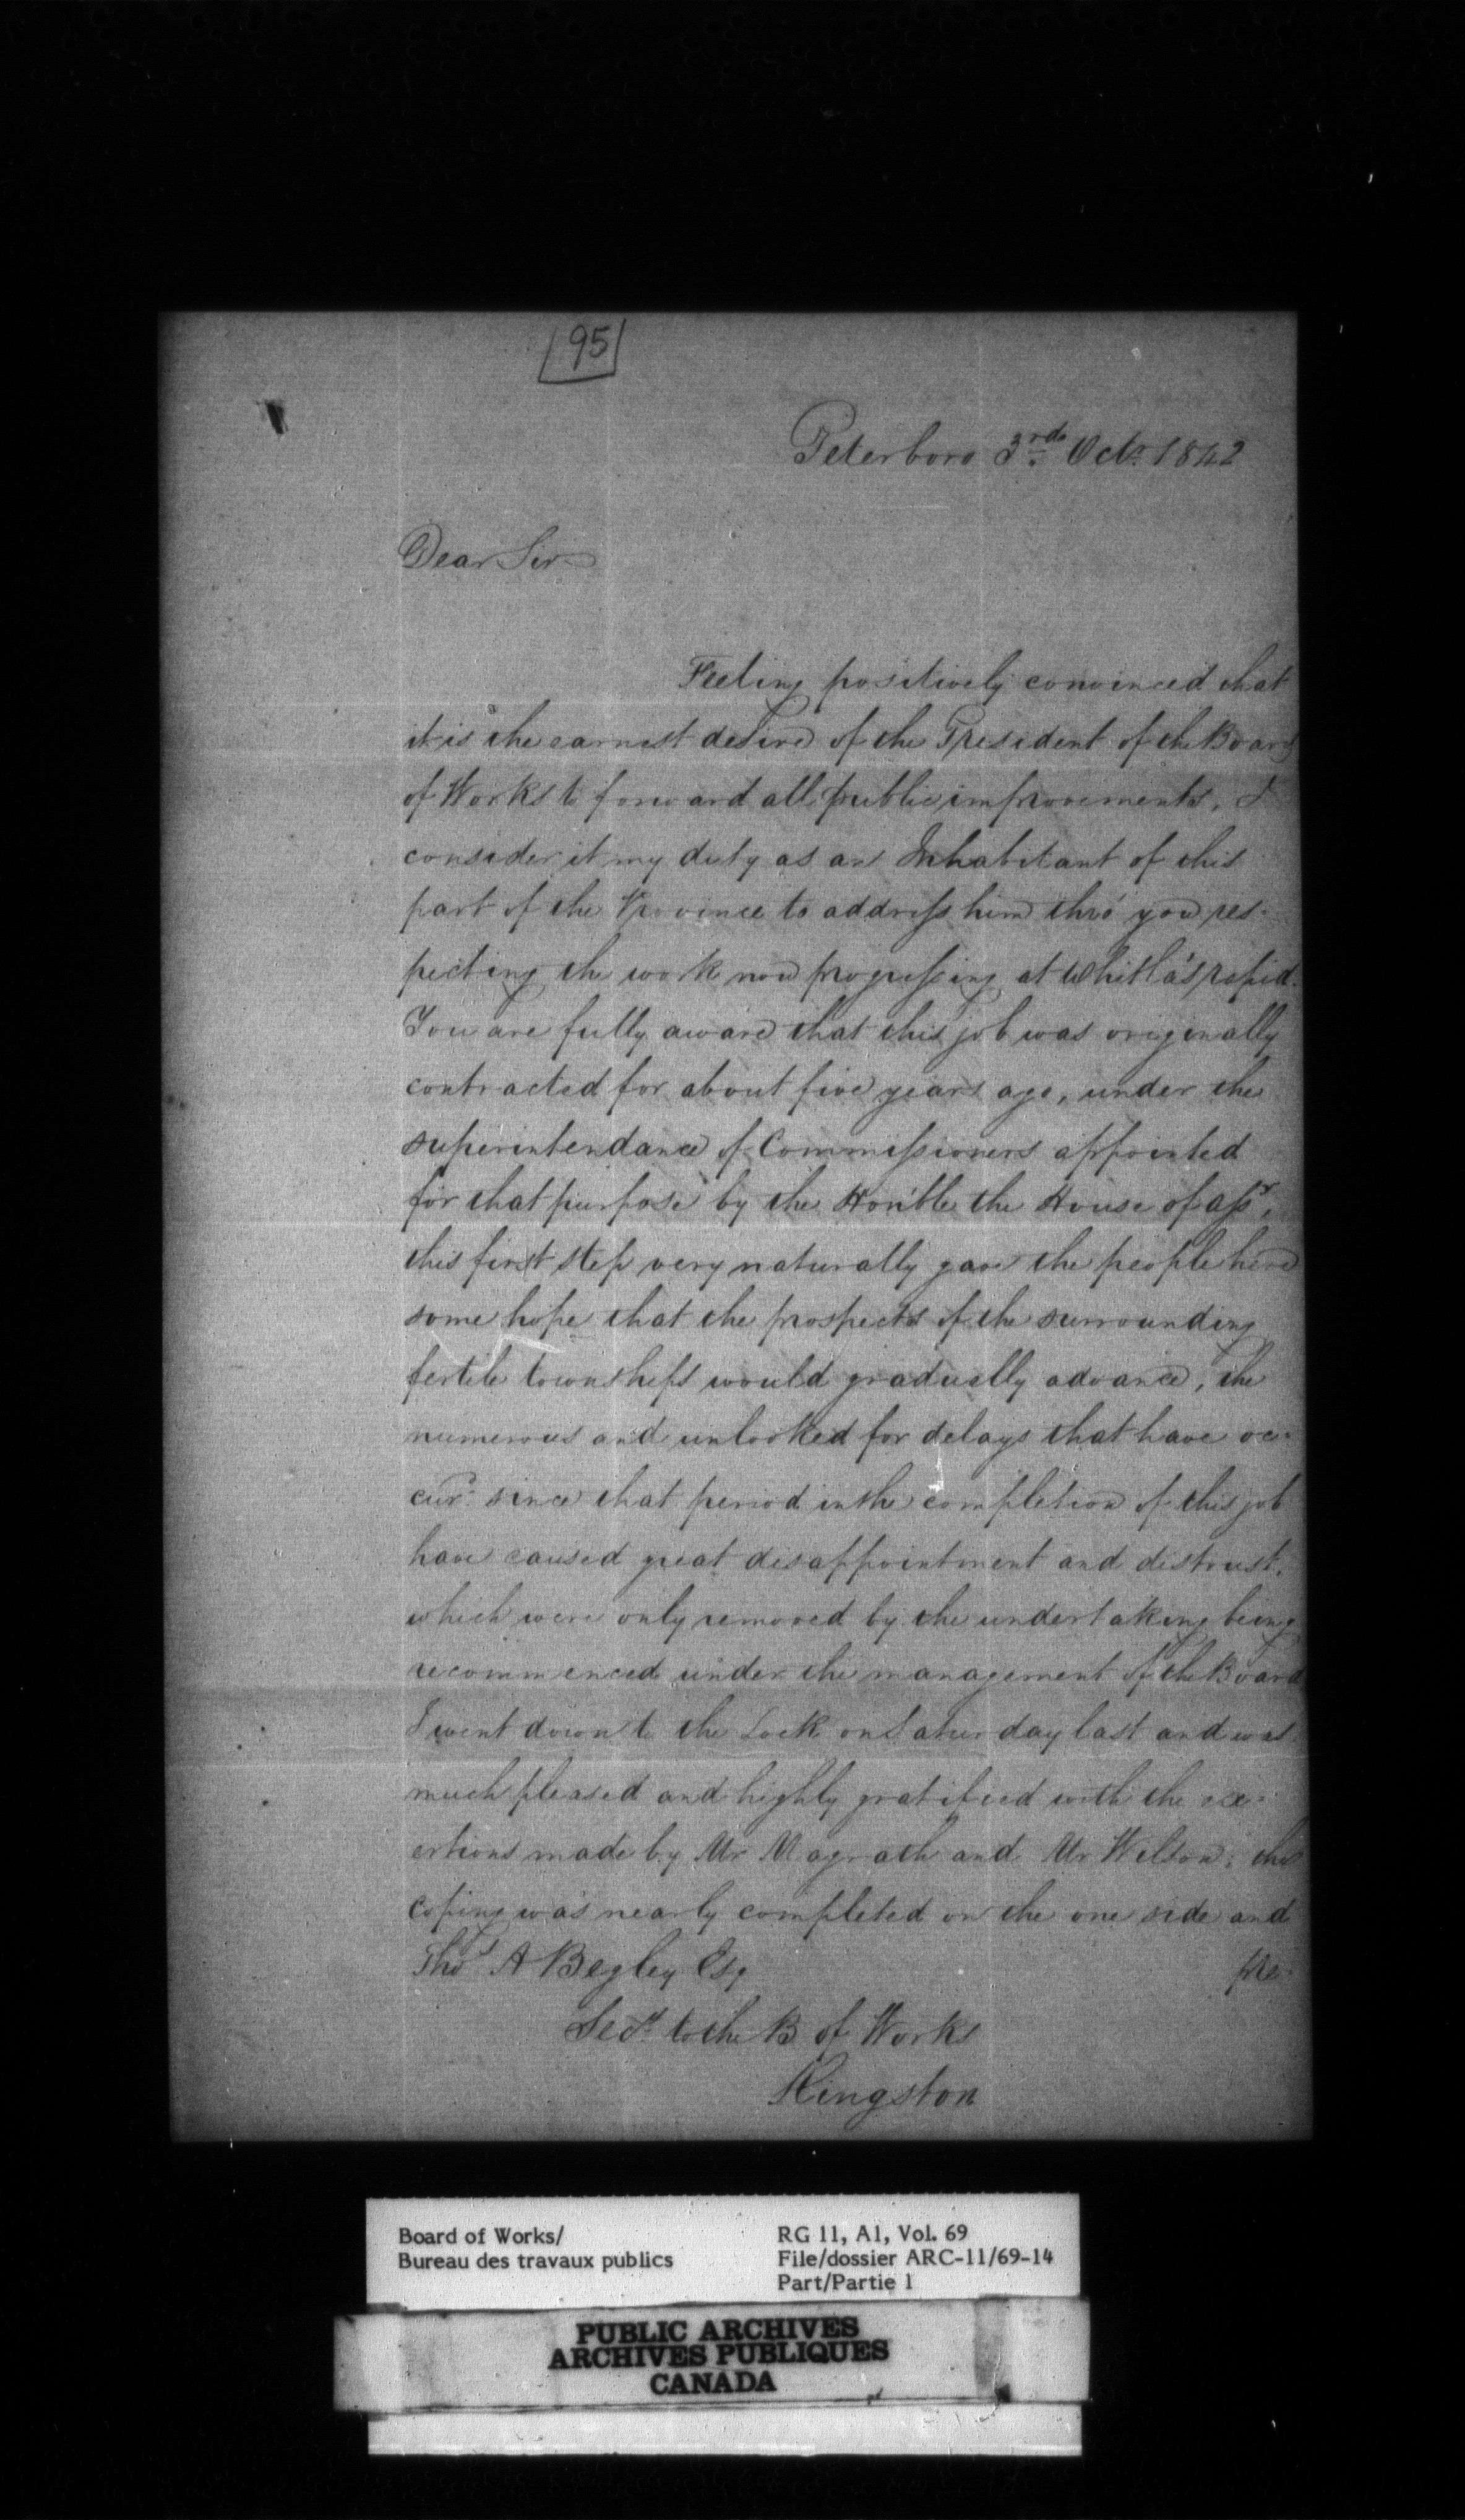 95
Peterboro 3rd. Octr. 1842
Dear Sir
Feeling positively convinced that
it is the earnest desire of the President of the Board
of Works to forward all public improvements, I
consider it my duty as an Inhabitant of this
part of the Province to address him thro' you res-
pecting the work now progressing at Whitla's rapid.
You are fully aware that this job was originally
contracted for about five years ago, under the
superintendance of Commissioners appointed
for that purpose by the Hon'ble the House of
this first step very naturally gave the people here
some hope that the prospects of the surrounding
fertile townships would gradually advance, the
numerous and unlooked for delays that have oc-
curd since that period in the completion of this job
have caused great disappointment and distrust,
which were only removed by the undertaking being
recommenced under the management of the Board
I went down to the Lock on Saturday last and was
much pleased and highly gratified with the ex-
ertions made by Mr Magrath and Mr Wilson, the
coping was nearly completed on the one side and
pre-
Thos A Begley Esq
Secy. to the B of Works
Kingston
Board of Works/
Bureau des travaux publics
RG 11, A1, Vol. 69
File/dossier ARC-11/69-14
Part/Partie 1
PUBLIC ARCHIVES
ARCHIVES PUBLIQUES
CANADA